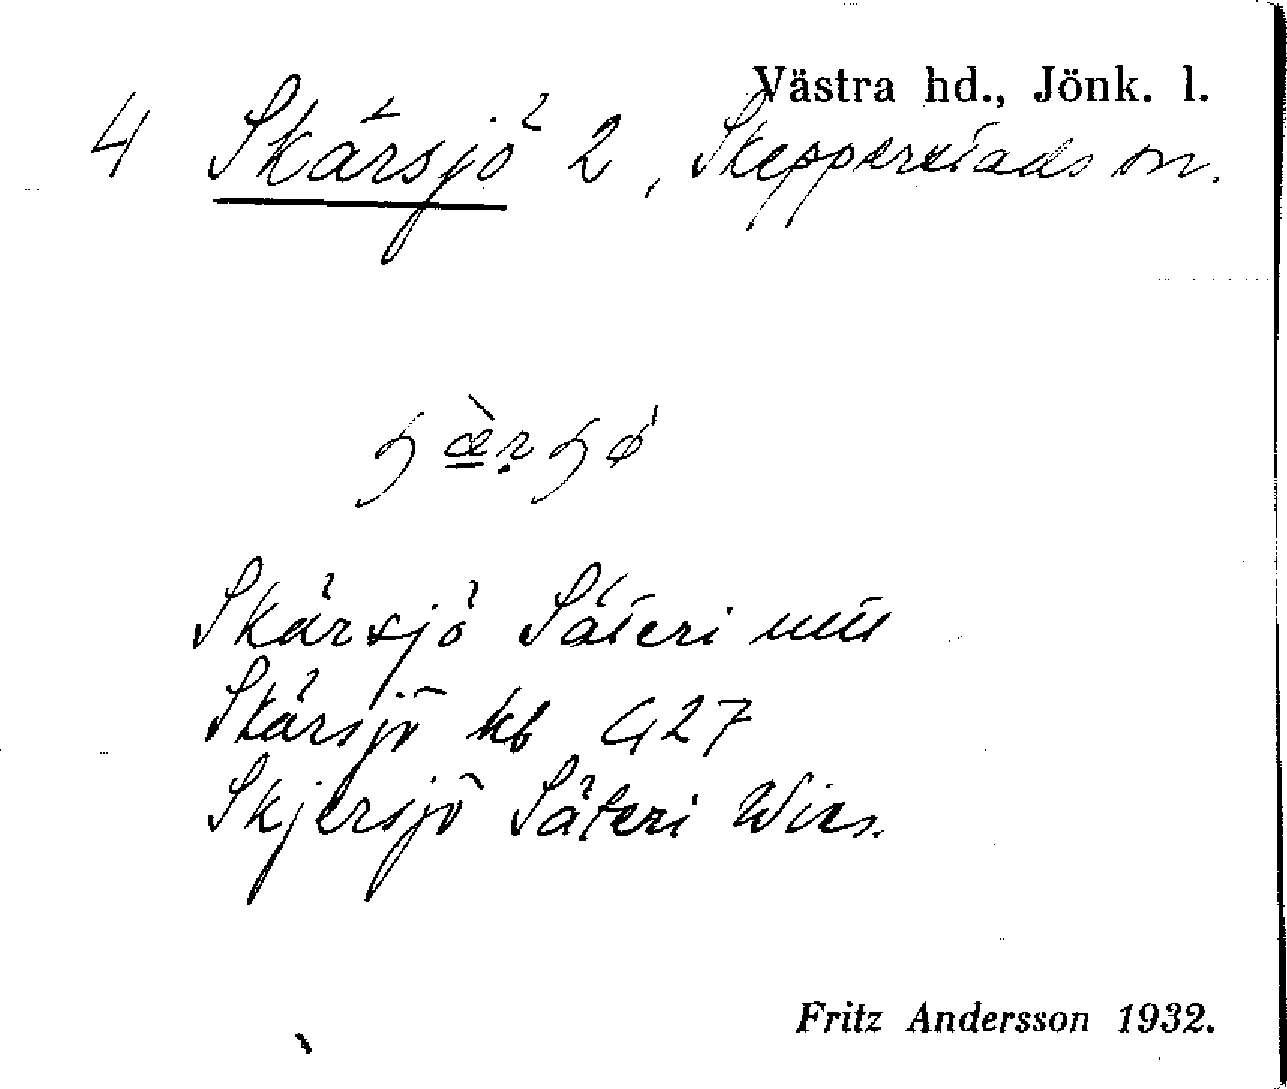 Västra hd., Jönk. l.
4 Skärsjö 2, Skepperstads sn.
Skärsjö Säteri
Skärsjö kb G27
Skjersjö Säteri Wies.
Fritz Andersson 1932.